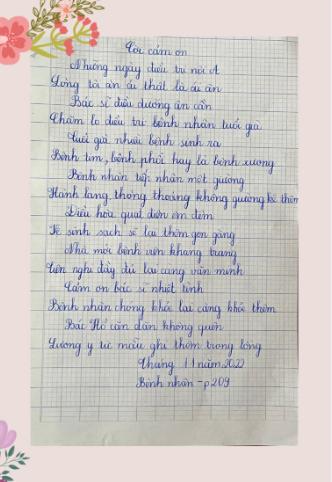 Lời cảm ơn
Những ngày điều trị nội A
Lòng tôi ân
Bác sĩ điều dưỡng ân cần
Chăm lo điều trị bệnh nhân tuổi già
Tuổi già nhiều bệnh sinh ra
Bệnh tim, bệnh phổi hay là bệnh xương
Bệnh nhân tiếp nhân một gường
Hành lang thông thoáng không gường kê thêm
Điều hòa quạt điện êm đềm
Vệ sinh sạch sẽ lại thêm gọn gàng
Nhà mới bệnh viện khang trang
Tiện nghi đầy đủ lại càng văn minh
Cảm ơn bác sĩ nhiệt tình
Bệnh nhân chóng khỏi lại càng khỏe thêm
Bác Hồ căn dặn không quên
Lương y từ mẫu ghi thêm trong lòng
Tháng 11 năm 2022
Bệnh nhân - p209